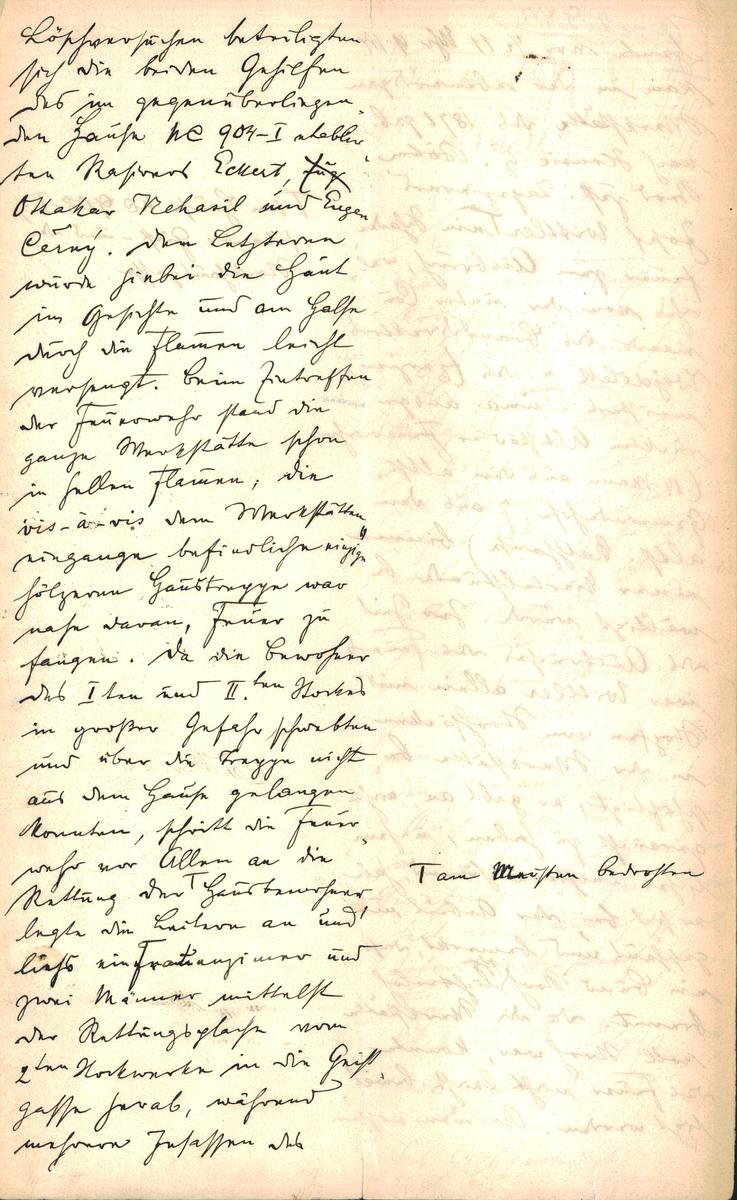 Löschversuchen beteiligten
sich die beiden Gehilfen
des im gegenüberliegen-
den Hause NC 904-I etablir-
ten Rasirers Eckert,
Ottokar Nehasil und Eugen
Černý. Dem Letzteren
wurde hiebei die Haut
im Gesichte und am Halse
durch die Flamen leicht
versengt. Beim Eintreffen
der Feuerwehr stand die
ganze Werkstätte schon
in hellen Flamen; die
vis-à-vis dem Werkstätten-
eingange befindliche einzige
hölzerne Haustreppe war
nahe daran, Feuer zu
fangen. Da die Bewohner
des I ten und II. ten Stockes
in großer Gefahr schwebten
und über die Treppe nicht
aus dem Hause gelangen
konnten, schritt die Feuer-
wehr vor Allem an die
Rettung der ⊤ Hausbewohner
⊤ am Meisten bedrohten
legte die Leitern an und
ließ ein Frauenzimer und
zwei Männer mittelst
der Rettungsplache vom
2ten Stockwerke in die Geist-
gasse herab, während
mehrere Insassen des